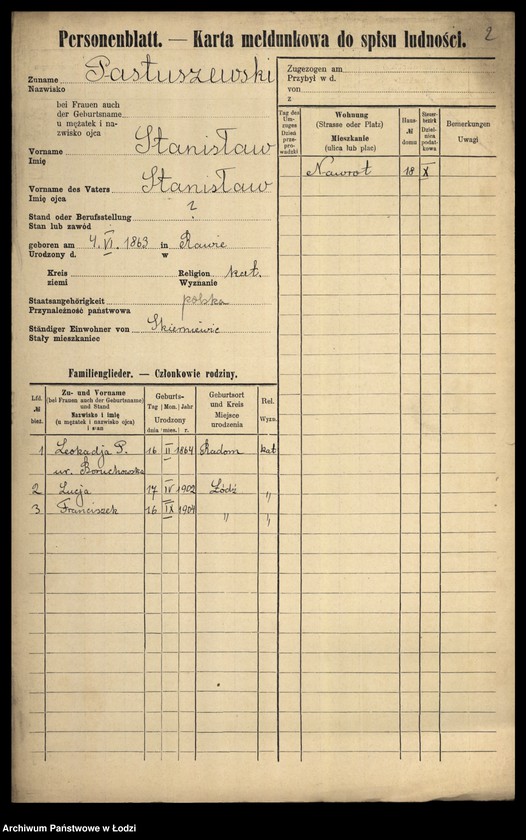 2
Personenblatt. — Karta meldunkowa do spisu ludności.
Zuname Pastuszewski
Nazwisko
bei Frauen auch
der Geburtsname
u mężatek i na-
zwisko ojca
Vorname Stanisław
Imię
Vorname des Vaters Stanisław
Imię ojca
Stand oder Berufsstellung ?
Stan lub zawód
geboren am 4. VI. 1863 in Rawie
Urodzony d. w
Kreis Religion kat.
ziemi Wyznanie
Staatsangehörigkeit polska
Przynależność państwowa
Ständiger Einwohner von Skierniewic
Stały mieszkaniec
Zugezogen am
Przybył w d.
von
z
Tag des Um-zuges Dzień prze-pro-wadzki
Wohnung (Strasse oder Platz) Mieszkanie (ulica lub plac)
Haus- № domu
Steuer-bezirk Dziel-nica podat-kowa
Bemerkungen Uwagi
Nawrot 18 X
Familienglieder. — Członkowie rodziny.
Lfd. № bież.
Zu- und Vorname (bei Frauen auch der Geburtsname) und Stand Nazwisko i imię (u mężatek i nazwisko ojca) i stan
Geburts- Tag Mon. Jahr Urodzony dnia mies. r.
Geburtsort und Kreis Miejsce urodzenia
Rel. Wyzn.
1 Leokadja P. 16 II 1864 Radom kat
ur. Boruchowska
2 Lucja 17 IV 1902 Łódź "
3 Franciszek 26 IX 1904 " "
Archiwum Państwowe w Łodzi